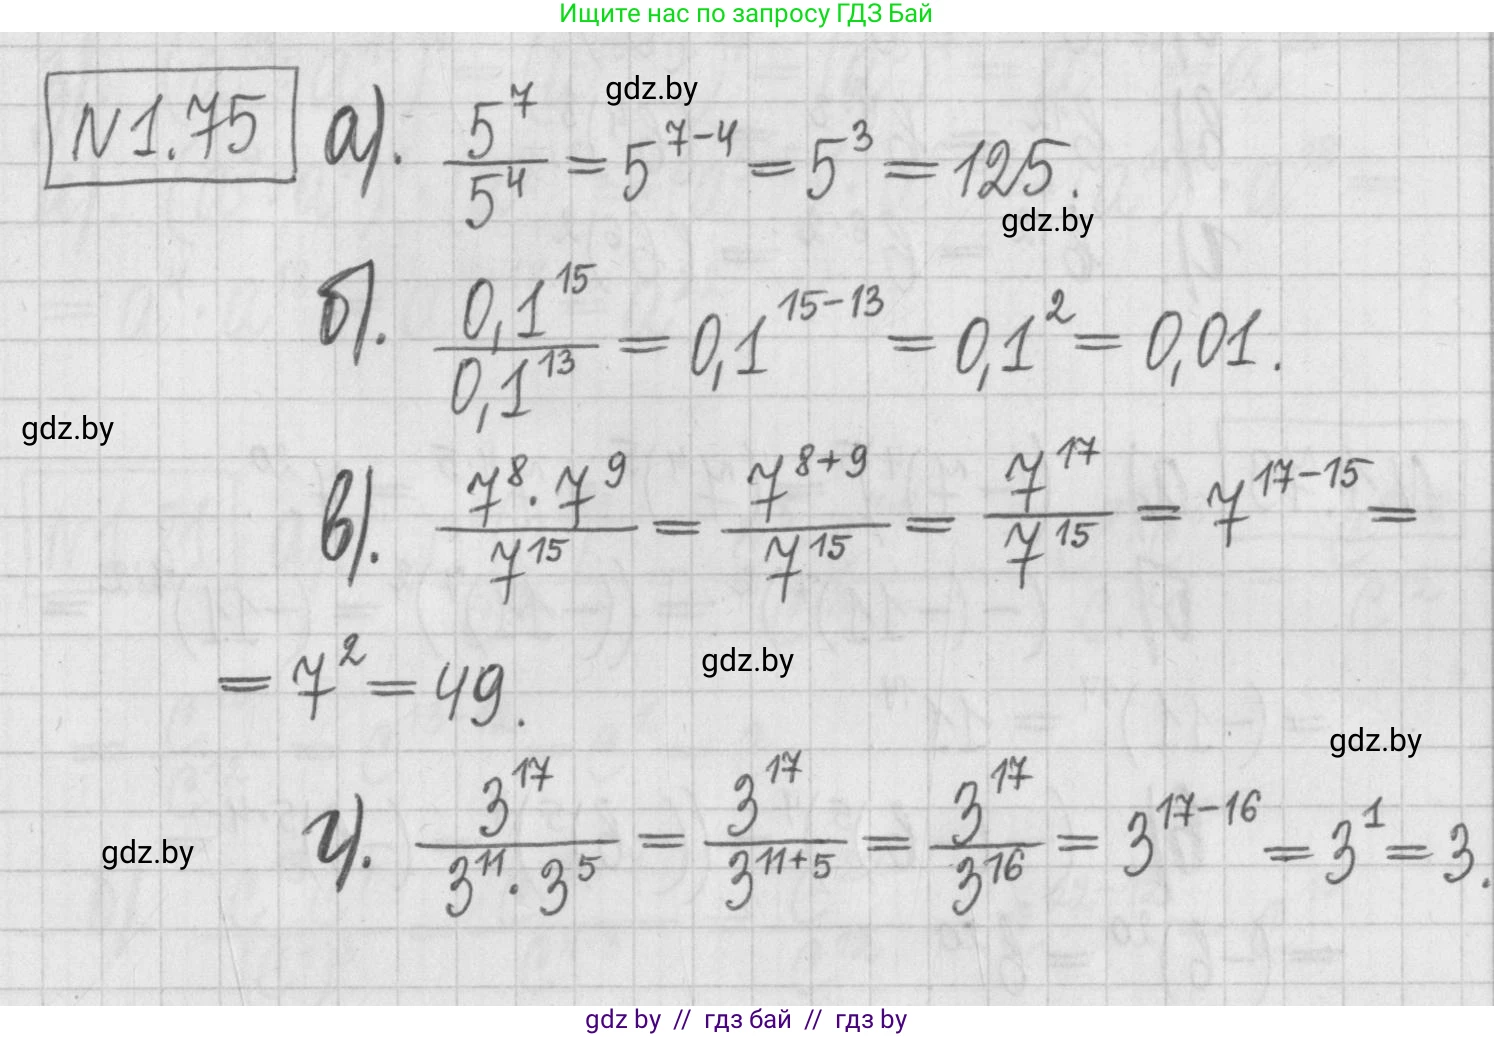 Ищите нас по запросу ГДЗ Бай
N1.75 а). 5^7/5^4 = 5^{7-4} = 5^3 = 125.
gdz.by
gdz.by
б). 0,1^{15}/0,1^{13} = 0,1^{15-13} = 0,1^2 = 0,01.
gdz.by
в). 7^8·7^9/7^{15} = 7^{8+9}/7^{15} = 7^{17}/7^{15} = 7^{17-15} =
= 7^2 = 49.
gdz.by
gdz.by
г). 3^{17}/3^{11}·3^5 = 3^{17}/3^{11+5} = 3^{17}/3^{16} = 3^{17-16} = 3^1 = 3.
gdz.by
gdz by // гдз бай // гдз by